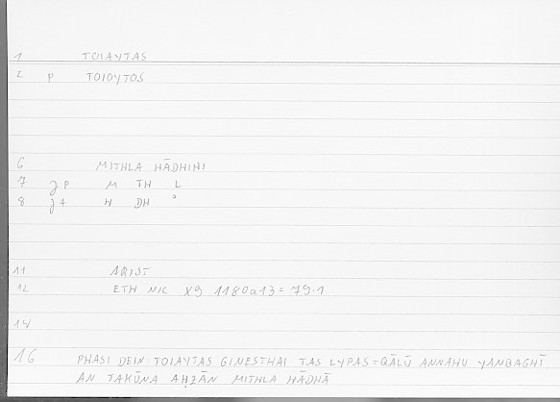 1 TOIAYTAS
2 P TOIOYTOS
6 MITHLA HĀDHIHI
7 J P M TH L
8 J + H DH ᵓ
11 ARIST
12 ETH NIC X9 1180a13 = 79.1
14
16 PHASI DEIN TOIAYTAS GINESTHAI TAS LYPAS = QĀLŪ ANNAHU YANBAGHĪ
AN TAKŪNA AḤZĀN MITHLA HĀDHĀ